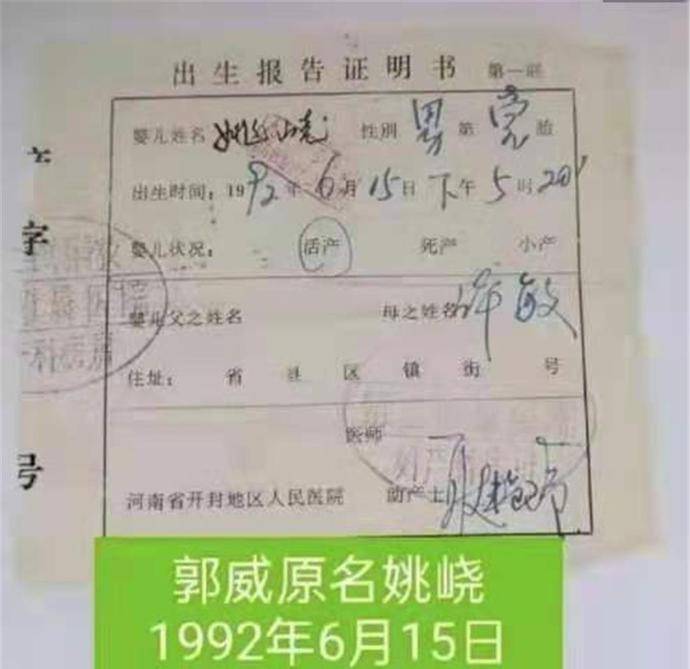 出生报告证明书 第一联
婴儿姓名 姚峣 性别 男 第 壹 胎
出生时间：1992年6月15日下午5时20'
婴儿状况： 活产 死产 小产
婴儿父之姓名 母之姓名 许敏
住址： 省 县 区 镇 街 号
医师
河南省开封地区人民医院 助产士
字
号
郭威原名姚峣
1992年6月15日